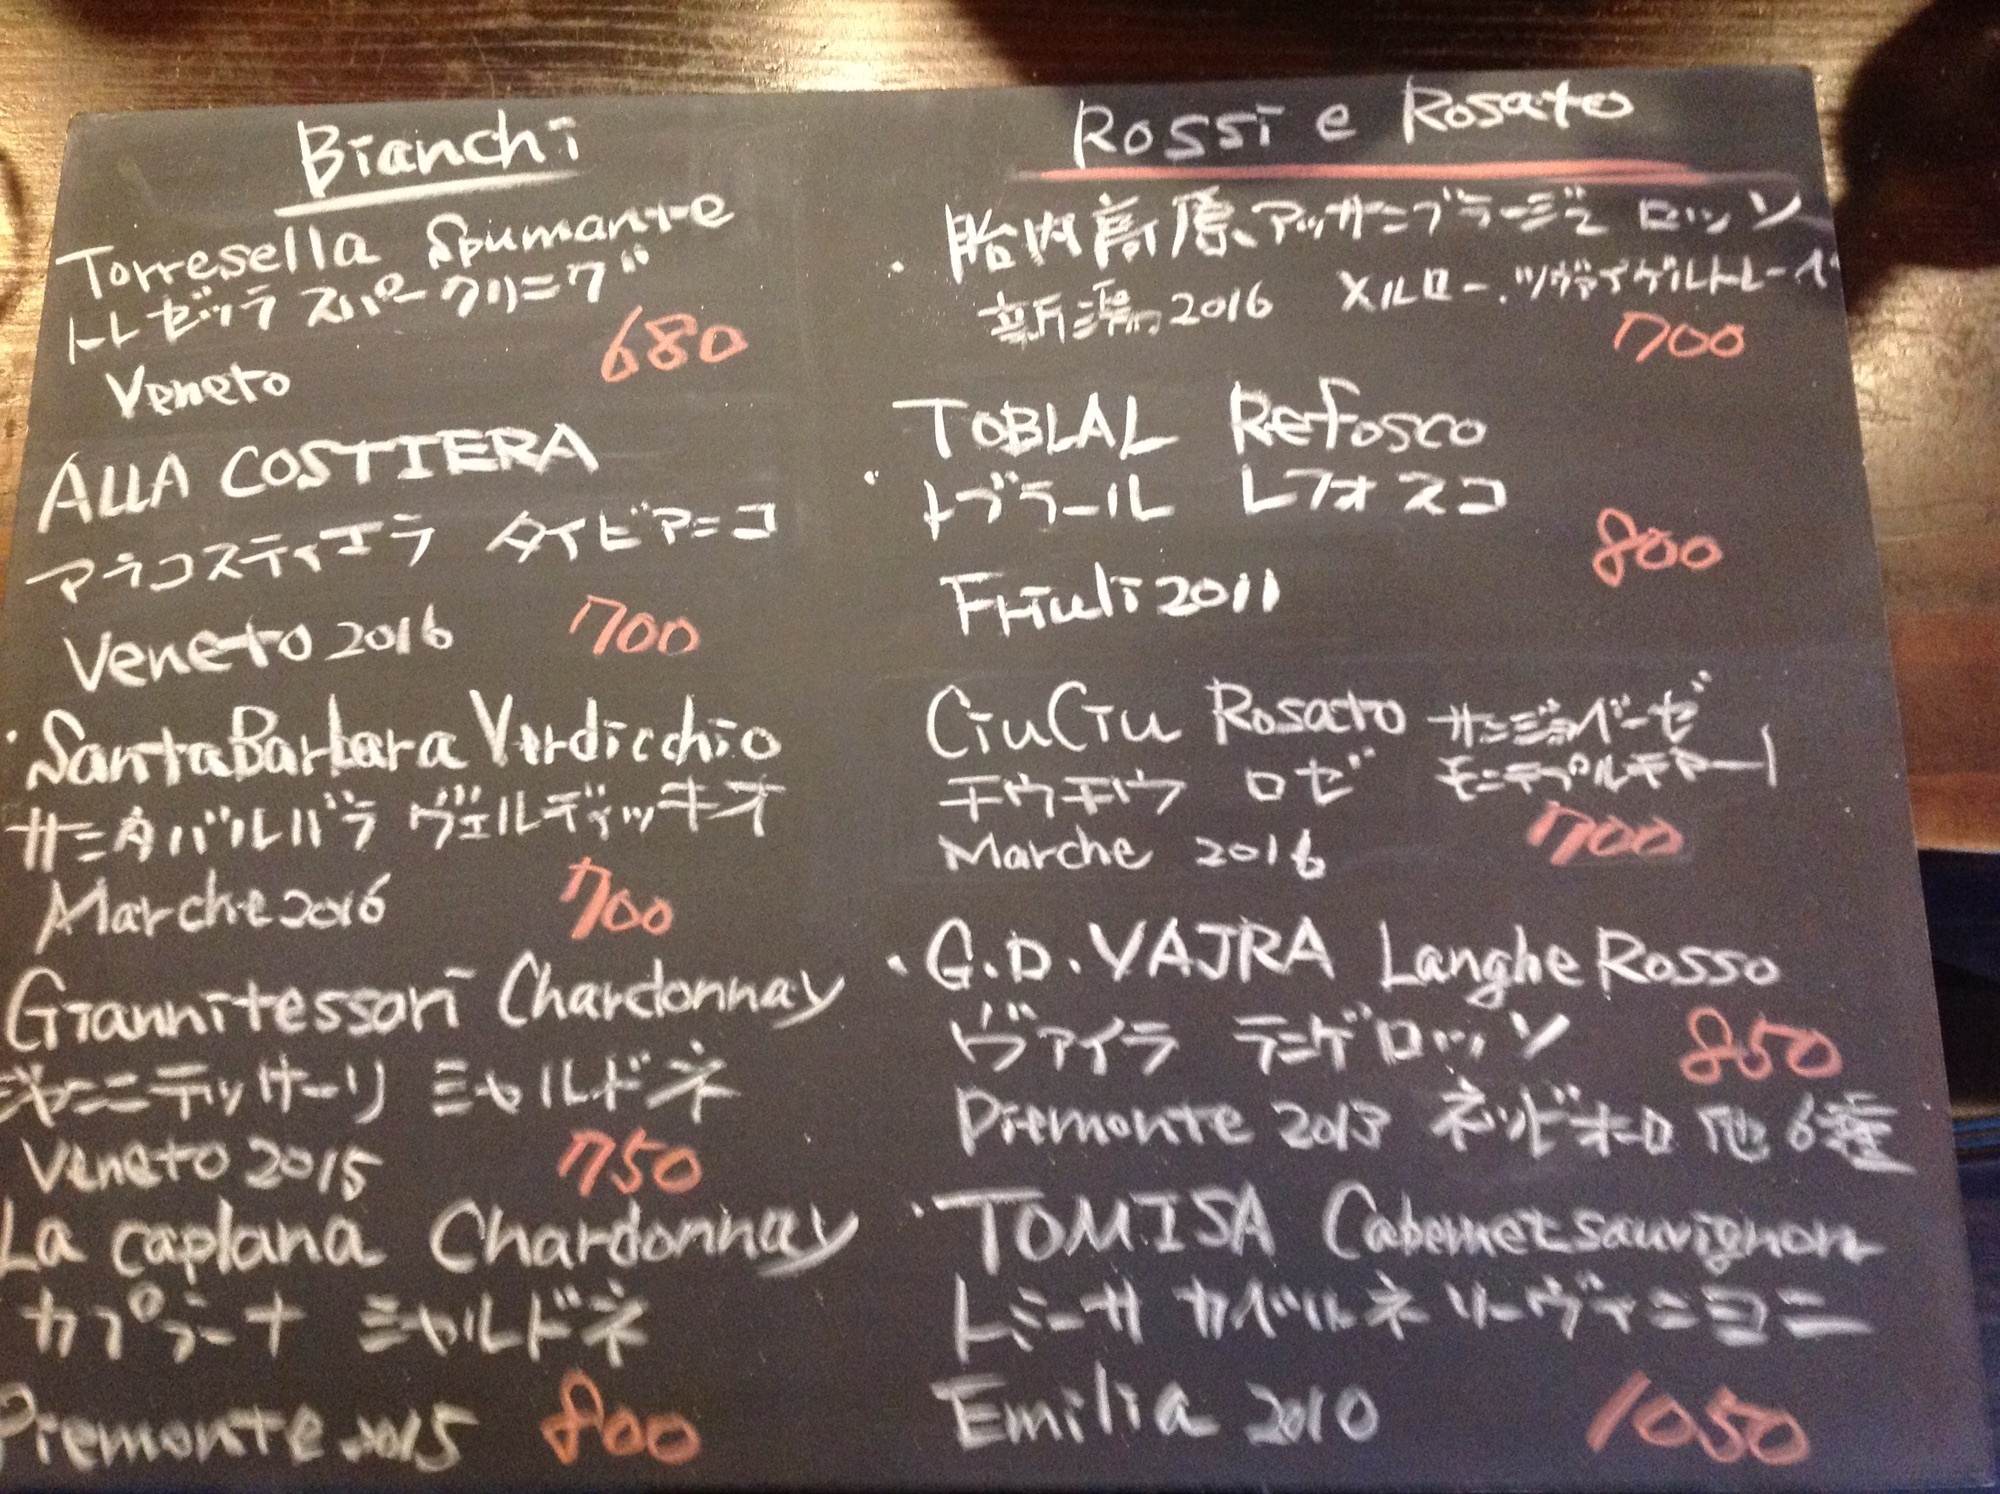 Bianchi
Torresella Spumante
トレゼッラ スパークリング
680
Veneto
ALLA COSTIERA
アラコスティエラ タイビアンコ
Veneto 2016 700
・Santa Barbara Verdicchio
サンタバルバラ ヴェルディッキオ
Marche 2016 700
Giannitessari Chardonnay
ジャンニテッサーリ シャルドネ
Veneto 2015 750
La caplana Chardonnay
カプラーナ シャルドネ
Piemonte 2015 800
Rossi e Rosato
・胎内高原、アッサンブラージュ ロッソ
新潟 2016 メルロー、ツヴァイゲルトレーベ
700
TOBLAL Refosco
・トブラール レフォスコ
800
Friuli 2011
CiuCiu Rosato サンジョベーゼ
チウチウ ロゼ モンテプルチアーノ
Marche 2016 700
・G.D.VAJRA Langhe Rosso
ヴァイラ ランゲロッソ 850
Piemonte 2013 ネッビオーロ 他6種
・TOMISA Cabernet sauvignon
トミーサ カベルネ ソーヴィニヨン
Emilia 2010 1050